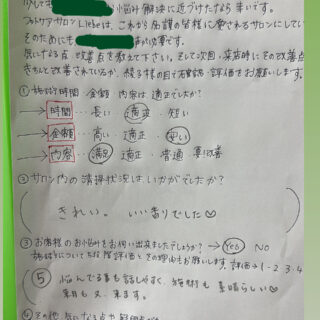 お悩み解決に近づけたなら幸いです。
これから島讃の皆様に愛されるサロンにしてい
そのためにも が必要です。
気になる点、改善点を教えて下さい。そして次回来店時にその改善点
きちんと改善されているか、様の目で再確認・評価をお願いします。
① 施術時間・金額・内容は適正でしたか?
→ 時間 … 長い 適正 ・短い
→ 金額 … 高い ・ 適正 ・ 安い
→ 内容 … 満足 適正 ・ 普通 ・ 要改善
② サロン内の清掃状況はいかがでしたか?
きれい。 いい香りでした♡
③ お客様のお悩みをお伺い出来ましたでしょうか? → Yes NO
施術についても段階評価とその理由もお願いします。評価→1・2・3・4
⑤ 悩んでる事も話しやすく、施術も素晴らしい♡
来月も又、来ます。
④ その他 気になる点や